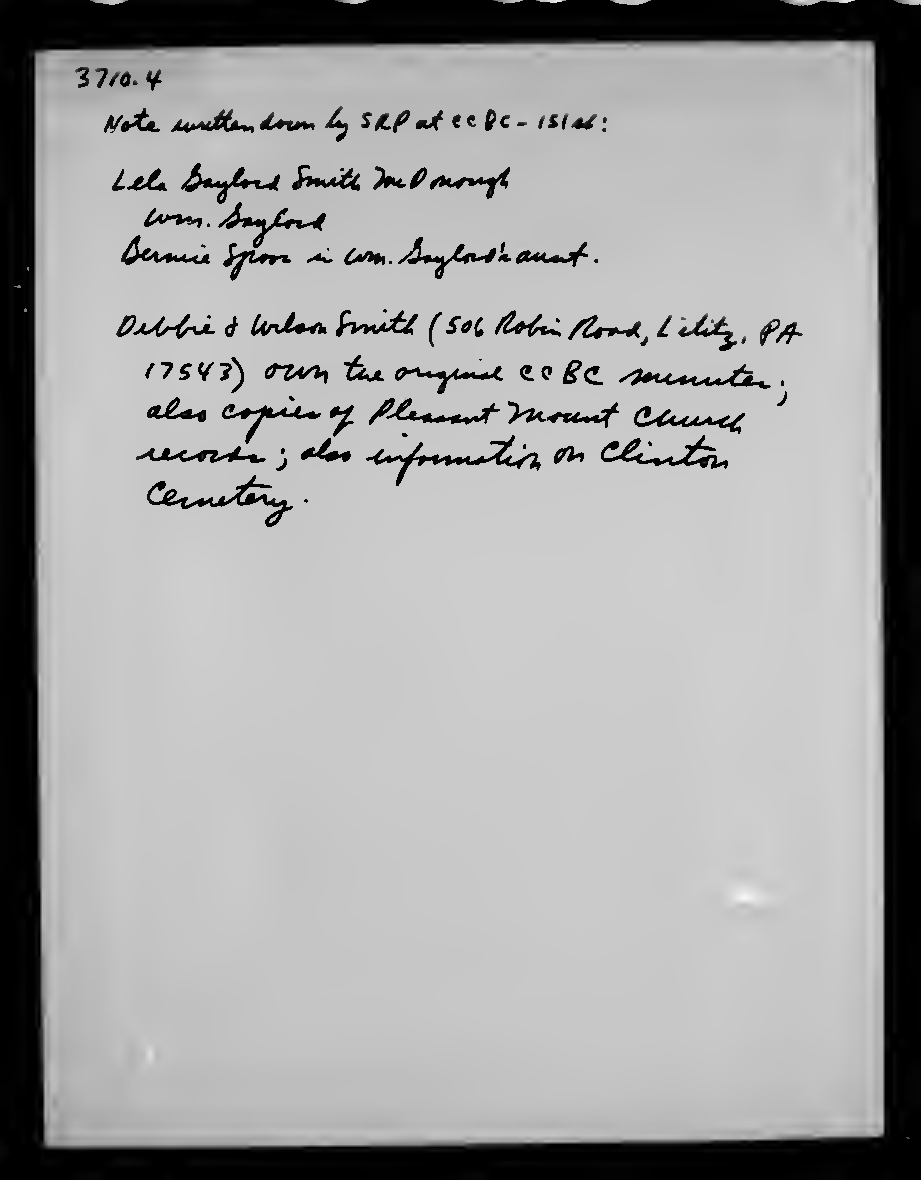 3710.4
Note written down by SRP at CCBC - 151st:
Lela Gaylord Smith McDonough
Wm. Gaylord
Bernice Spoor is Wm. Gaylord's aunt.
Debbie & Wilson Smith (506 Robin Road, Lititz, PA
17543) own the original CCBC minutes;
also copies of Pleasant Mount Church
records; also information on Clinton
Cemetery.